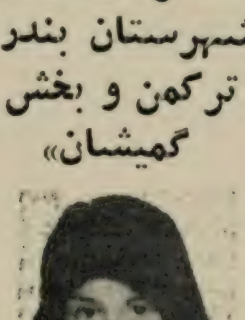 شهرستان بندر
ترکمن و بخش
گمیشان»